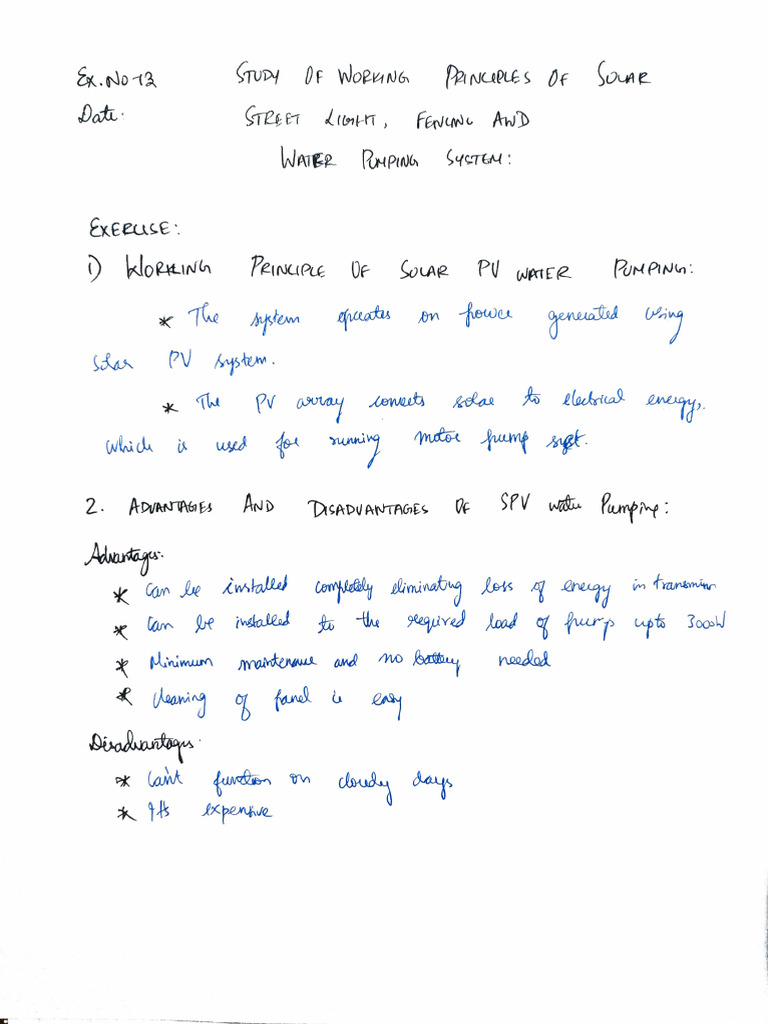 Ex. No-13 STUDY OF WORKING PRINCIPLES OF SOLAR
Date: STREET LIGHT, FENCING AND
WATER PUMPING SYSTEM:
EXERCISE:
1) WORKING PRINCIPLE OF SOLAR PV WATER PUMPING:
* The system operates on power generated using
solar PV system.
* The PV array converts solar to electrical energy,
which is used for running motor pump syst.
2. ADVANTAGES AND DISADVANTAGES OF SPV water Pumping:
Advantages:
* Can be installed completely eliminating loss of energy in
* Can be installed to the required load of pump upto 3000W
* Minimum maintenance and no battery needed
* Cleaning of panel is easy
Disadvantages:
* Can't function on cloudy days
* Its expensive